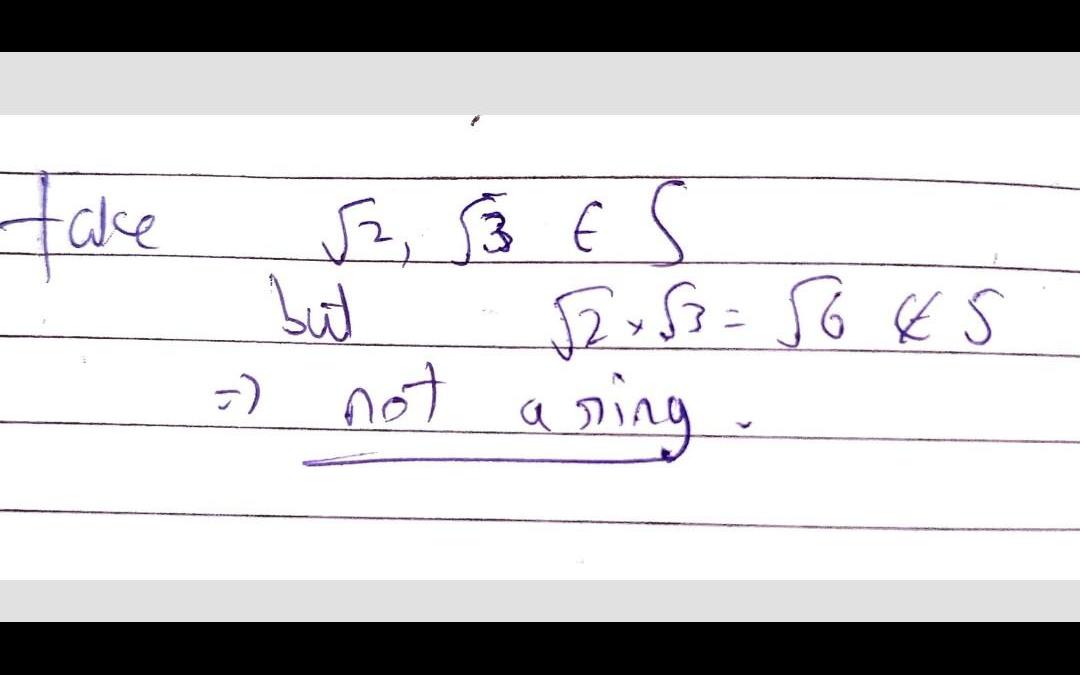 take √2, √3 ∈ S
but √2 × √3 = √6 ∉ S
=) not a ring.